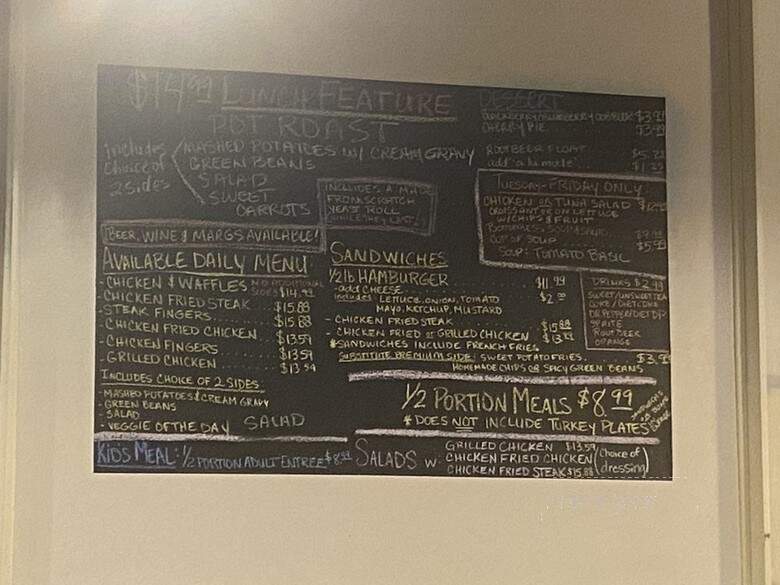 $14.99 LUNCH FEATURE
POT ROAST
includes choice of 2 sides
MASHED POTATOES W/ CREAM GRAVY
GREEN BEANS
SALAD
SWEET CARROTS
INCLUDES A MADE
FROM SCRATCH
YEAST ROLL
BEER, WINE & MARGS AVAILABLE!
AVAILABLE DAILY MENU
- CHICKEN & WAFFLES NO ADDITIONAL SIDES $14.99
- CHICKEN FRIED STEAK $15.88
- STEAK FINGERS $15.88
- CHICKEN FRIED CHICKEN $13.59
- CHICKEN FINGERS $13.59
- GRILLED CHICKEN $13.59
INCLUDES CHOICE OF 2 SIDES
- MASHED POTATOES & CREAM GRAVY
- GREEN BEANS
- SALAD
- VEGGIE OF THE DAY SALAD
KIDS MEAL: 1/2 PORTION ADULT ENTREE $8.99
DESSERT
CHERRY PIE
ROOTBEER FLOAT
add "a la mode"
TUESDAY-FRIDAY ONLY
CHICKEN OR TUNA SALAD
CROISSANT OR ON LETTUCE
W/ CHIPS & FRUIT
CUP OF SOUP
SOUP: TOMATO BASIL
SANDWICHES
1/2 lb HAMBURGER $11.99
- add CHEESE $2.00
includes LETTUCE, ONION, TOMATO
MAYO, KETCHUP, MUSTARD
- CHICKEN FRIED STEAK $15.88
- CHICKEN FRIED or GRILLED CHICKEN
*SANDWICHES INCLUDE FRENCH FRIES
SUBSTITUTE PREMIUM SIDE: SWEET POTATO FRIES
HOMEMADE CHIPS OR SPICY GREEN BEANS
DRINKS $2.99
SWEET/UNSWEET TEA
COKE/DIET COKE
DR PEPPER/DIET DP
SPRITE
ROOT BEER
ORANGE
1/2 PORTION MEALS $8.99
* DOES NOT INCLUDE TURKEY PLATES
SALADS W:
GRILLED CHICKEN $13.59
CHICKEN FRIED CHICKEN
CHICKEN FRIED STEAK $15.88
(Choice of dressing)